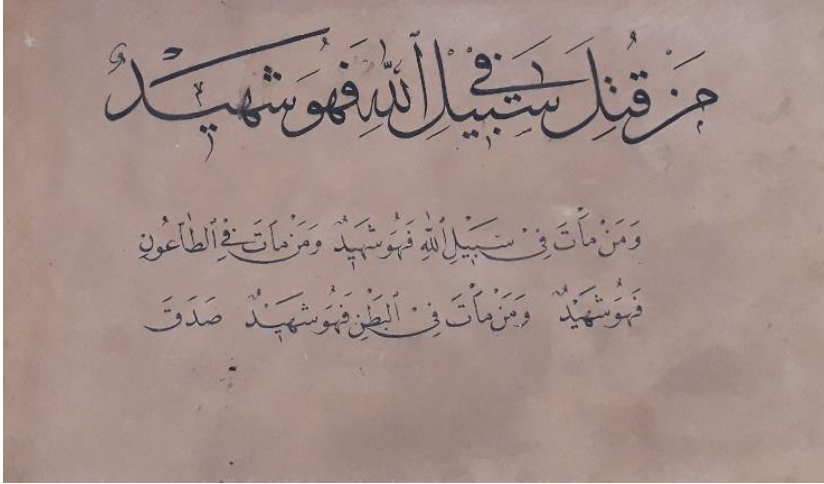 مَنْ قُتِلَ فِي سَبِيلِ ٱللّٰهِ فَهُوَ شَهِيدٌ
وَمَنْ مَاتَ فِي سَبِيلِ ٱللّٰهِ فَهُوَ شَهِيدٌ وَمَنْ مَاتَ فِي ٱلطَّاعُونِ
فَهُوَ شَهِيْدٌ وَمَنْ مَاتَ فِي ٱلْبَطْنِ فَهُوَ شَهِيْدٌ صَدَقَ